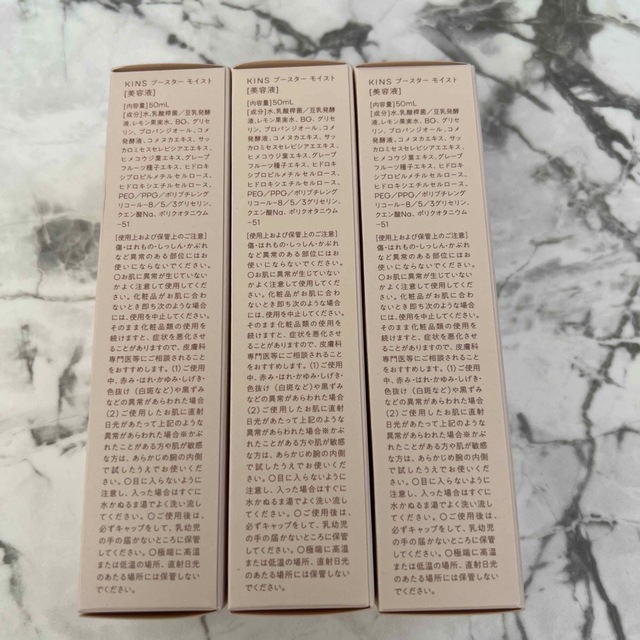 KINS ブースター モイスト
[美容液]
[内容量]50mL
[成分]水、乳酸桿菌／豆乳発酵
液、レモン果実水、BG、グリセ
リン、プロパンジオール、コメ
発酵液、コメヌカエキス、サッ
カロミセスセレビシアエエキス、
ヒメコウジ葉エキス、グレープ
フルーツ種子エキス、ヒドロキ
シプロピルメチルセルロース、
ヒドロキシエチルセルロース、
PEG／PPG／ポリブチレング
リコール-8／5／3グリセリン、
クエン酸Na、ポリクオタニウム
-51
[使用上および保管上のご注意]
傷・はれもの・しっしん・かぶれ
など異常のある部位にはお
使いにならないでください。
〇お肌に異常が生じていない
かよく注意して使用してくだ
さい。化粧品がお肌に合わ
ないとき即ち次のような場合
には、使用を中止してください。
そのまま化粧品類の使用を
続けますと、症状を悪化させ
ることがありますので、皮膚科
専門医等にご相談されること
をおすすめします。(1)ご使用
中、赤み・はれ・かゆみ・しげき・
色抜け（白斑など）や黒ずみ
などの異常があらわれた場合
(2)ご使用したお肌に直射
日光があたって上記のような
異常があらわれた場合※かぶ
れたことがある方や肌が敏感
な方は、あらかじめ腕の内側
で試したうえでお使いくださ
い。〇目に入らないように
注意し、入った場合はすぐに
水かぬるま湯でよく洗い流し
てください。〇ご使用後は、
必ずキャップをして、乳幼児
の手の届かないところに保管
してください。〇極端に高温
または低温の場所、直射日光
のあたる場所には保管しない
でください。
KINS ブースター モイスト
[美容液]
[内容量]50mL
[成分]水、乳酸桿菌／豆乳発酵
液、レモン果実水、BG、グリセ
リン、プロパンジオール、コメ
発酵液、コメヌカエキス、サッ
カロミセスセレビシアエエキス、
ヒメコウジ葉エキス、グレープ
フルーツ種子エキス、ヒドロキ
シプロピルメチルセルロース、
ヒドロキシエチルセルロース、
PEG／PPG／ポリブチレング
リコール-8／5／3グリセリン、
クエン酸Na、ポリクオタニウム
-51
[使用上および保管上のご注意]
傷・はれもの・しっしん・かぶれ
など異常のある部位にはお
使いにならないでください。
〇お肌に異常が生じていない
かよく注意して使用してくだ
さい。化粧品がお肌に合わ
ないとき即ち次のような場合
には、使用を中止してください。
そのまま化粧品類の使用を
続けますと、症状を悪化させ
ることがありますので、皮膚科
専門医等にご相談されること
をおすすめします。(1)ご使用
中、赤み・はれ・かゆみ・しげき・
色抜け（白斑など）や黒ずみ
などの異常があらわれた場合
(2)ご使用したお肌に直射
日光があたって上記のような
異常があらわれた場合※かぶ
れたことがある方や肌が敏感
な方は、あらかじめ腕の内側
で試したうえでお使いくださ
い。〇目に入らないように
注意し、入った場合はすぐに
水かぬるま湯でよく洗い流し
てください。〇ご使用後は、
必ずキャップをして、乳幼児
の手の届かないところに保管
してください。〇極端に高温
または低温の場所、直射日光
のあたる場所には保管しない
でください。
KINS ブースター モイスト
[美容液]
[内容量]50mL
[成分]水、乳酸桿菌／豆乳発酵
液、レモン果実水、BG、グリセ
リン、プロパンジオール、コメ
発酵液、コメヌカエキス、サッ
カロミセスセレビシアエエキス、
ヒメコウジ葉エキス、グレープ
フルーツ種子エキス、ヒドロキ
シプロピルメチルセルロース、
ヒドロキシエチルセルロース、
PEG／PPG／ポリブチレング
リコール-8／5／3グリセリン、
クエン酸Na、ポリクオタニウム
-51
[使用上および保管上のご注意]
傷・はれもの・しっしん・かぶれ
など異常のある部位にはお
使いにならないでください。
〇お肌に異常が生じていない
かよく注意して使用してくだ
さい。化粧品がお肌に合わ
ないとき即ち次のような場合
には、使用を中止してください。
そのまま化粧品類の使用を
続けますと、症状を悪化させ
ることがありますので、皮膚科
専門医等にご相談されること
をおすすめします。(1)ご使用
中、赤み・はれ・かゆみ・しげき・
色抜け（白斑など）や黒ずみ
などの異常があらわれた場合
(2)ご使用したお肌に直射
日光があたって上記のような
異常があらわれた場合※かぶ
れたことがある方や肌が敏感
な方は、あらかじめ腕の内側
で試したうえでお使いくださ
い。〇目に入らないように
注意し、入った場合はすぐに
水かぬるま湯でよく洗い流し
てください。〇ご使用後は、
必ずキャップをして、乳幼児
の手の届かないところに保管
してください。〇極端に高温
または低温の場所、直射日光
のあたる場所には保管しない
でください。